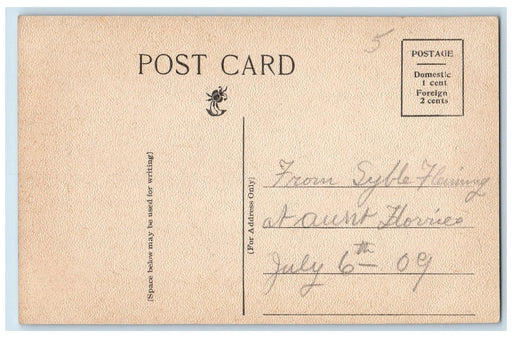 5
POST CARD
POSTAGE
Domestic
1 cent
Foreign
2 cents
(Space below may be used for writing)
(For Address Only)
From Syble Fleming
at aunt Florries
July 6th 09